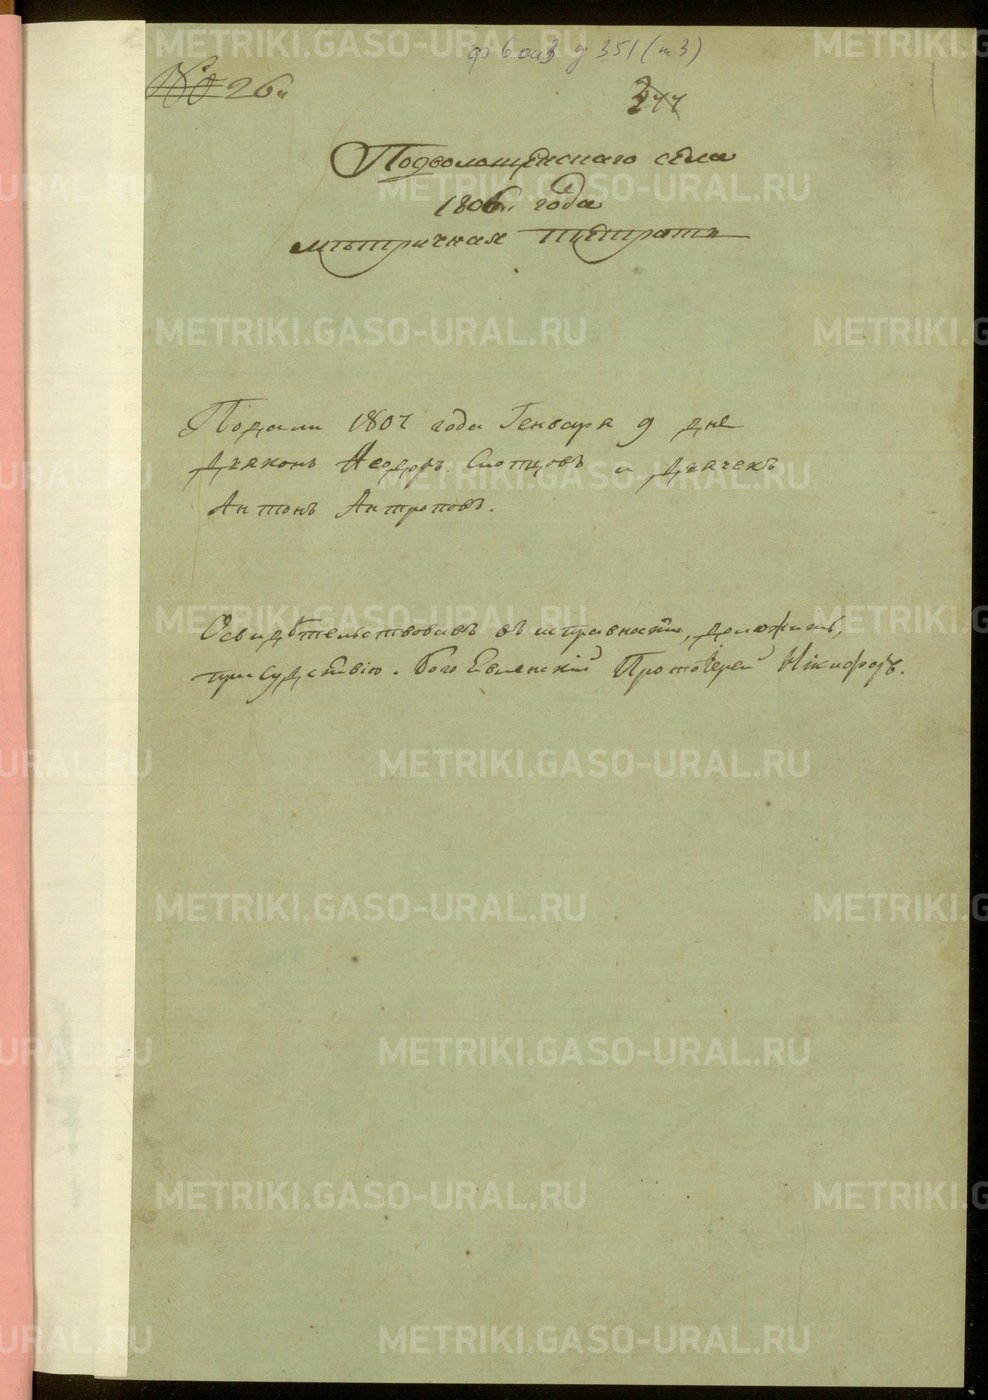 ф 6 оп 3 д 351 (т 3)
№ 26й
Подволошенскаго села
1806го года
метричная тетрать
Подали 1807 года Генваря 9 дня
Дьяконъ Ѳеодоръ Слопцовъ и Дьячекъ
Антонъ Антроповъ.
Освидѣтельствовавъ въ исправности, доложить,
присудствію. Бого Явленскій Протоіерей Нікифоръ.
METRIKI.GASO-URAL.RU